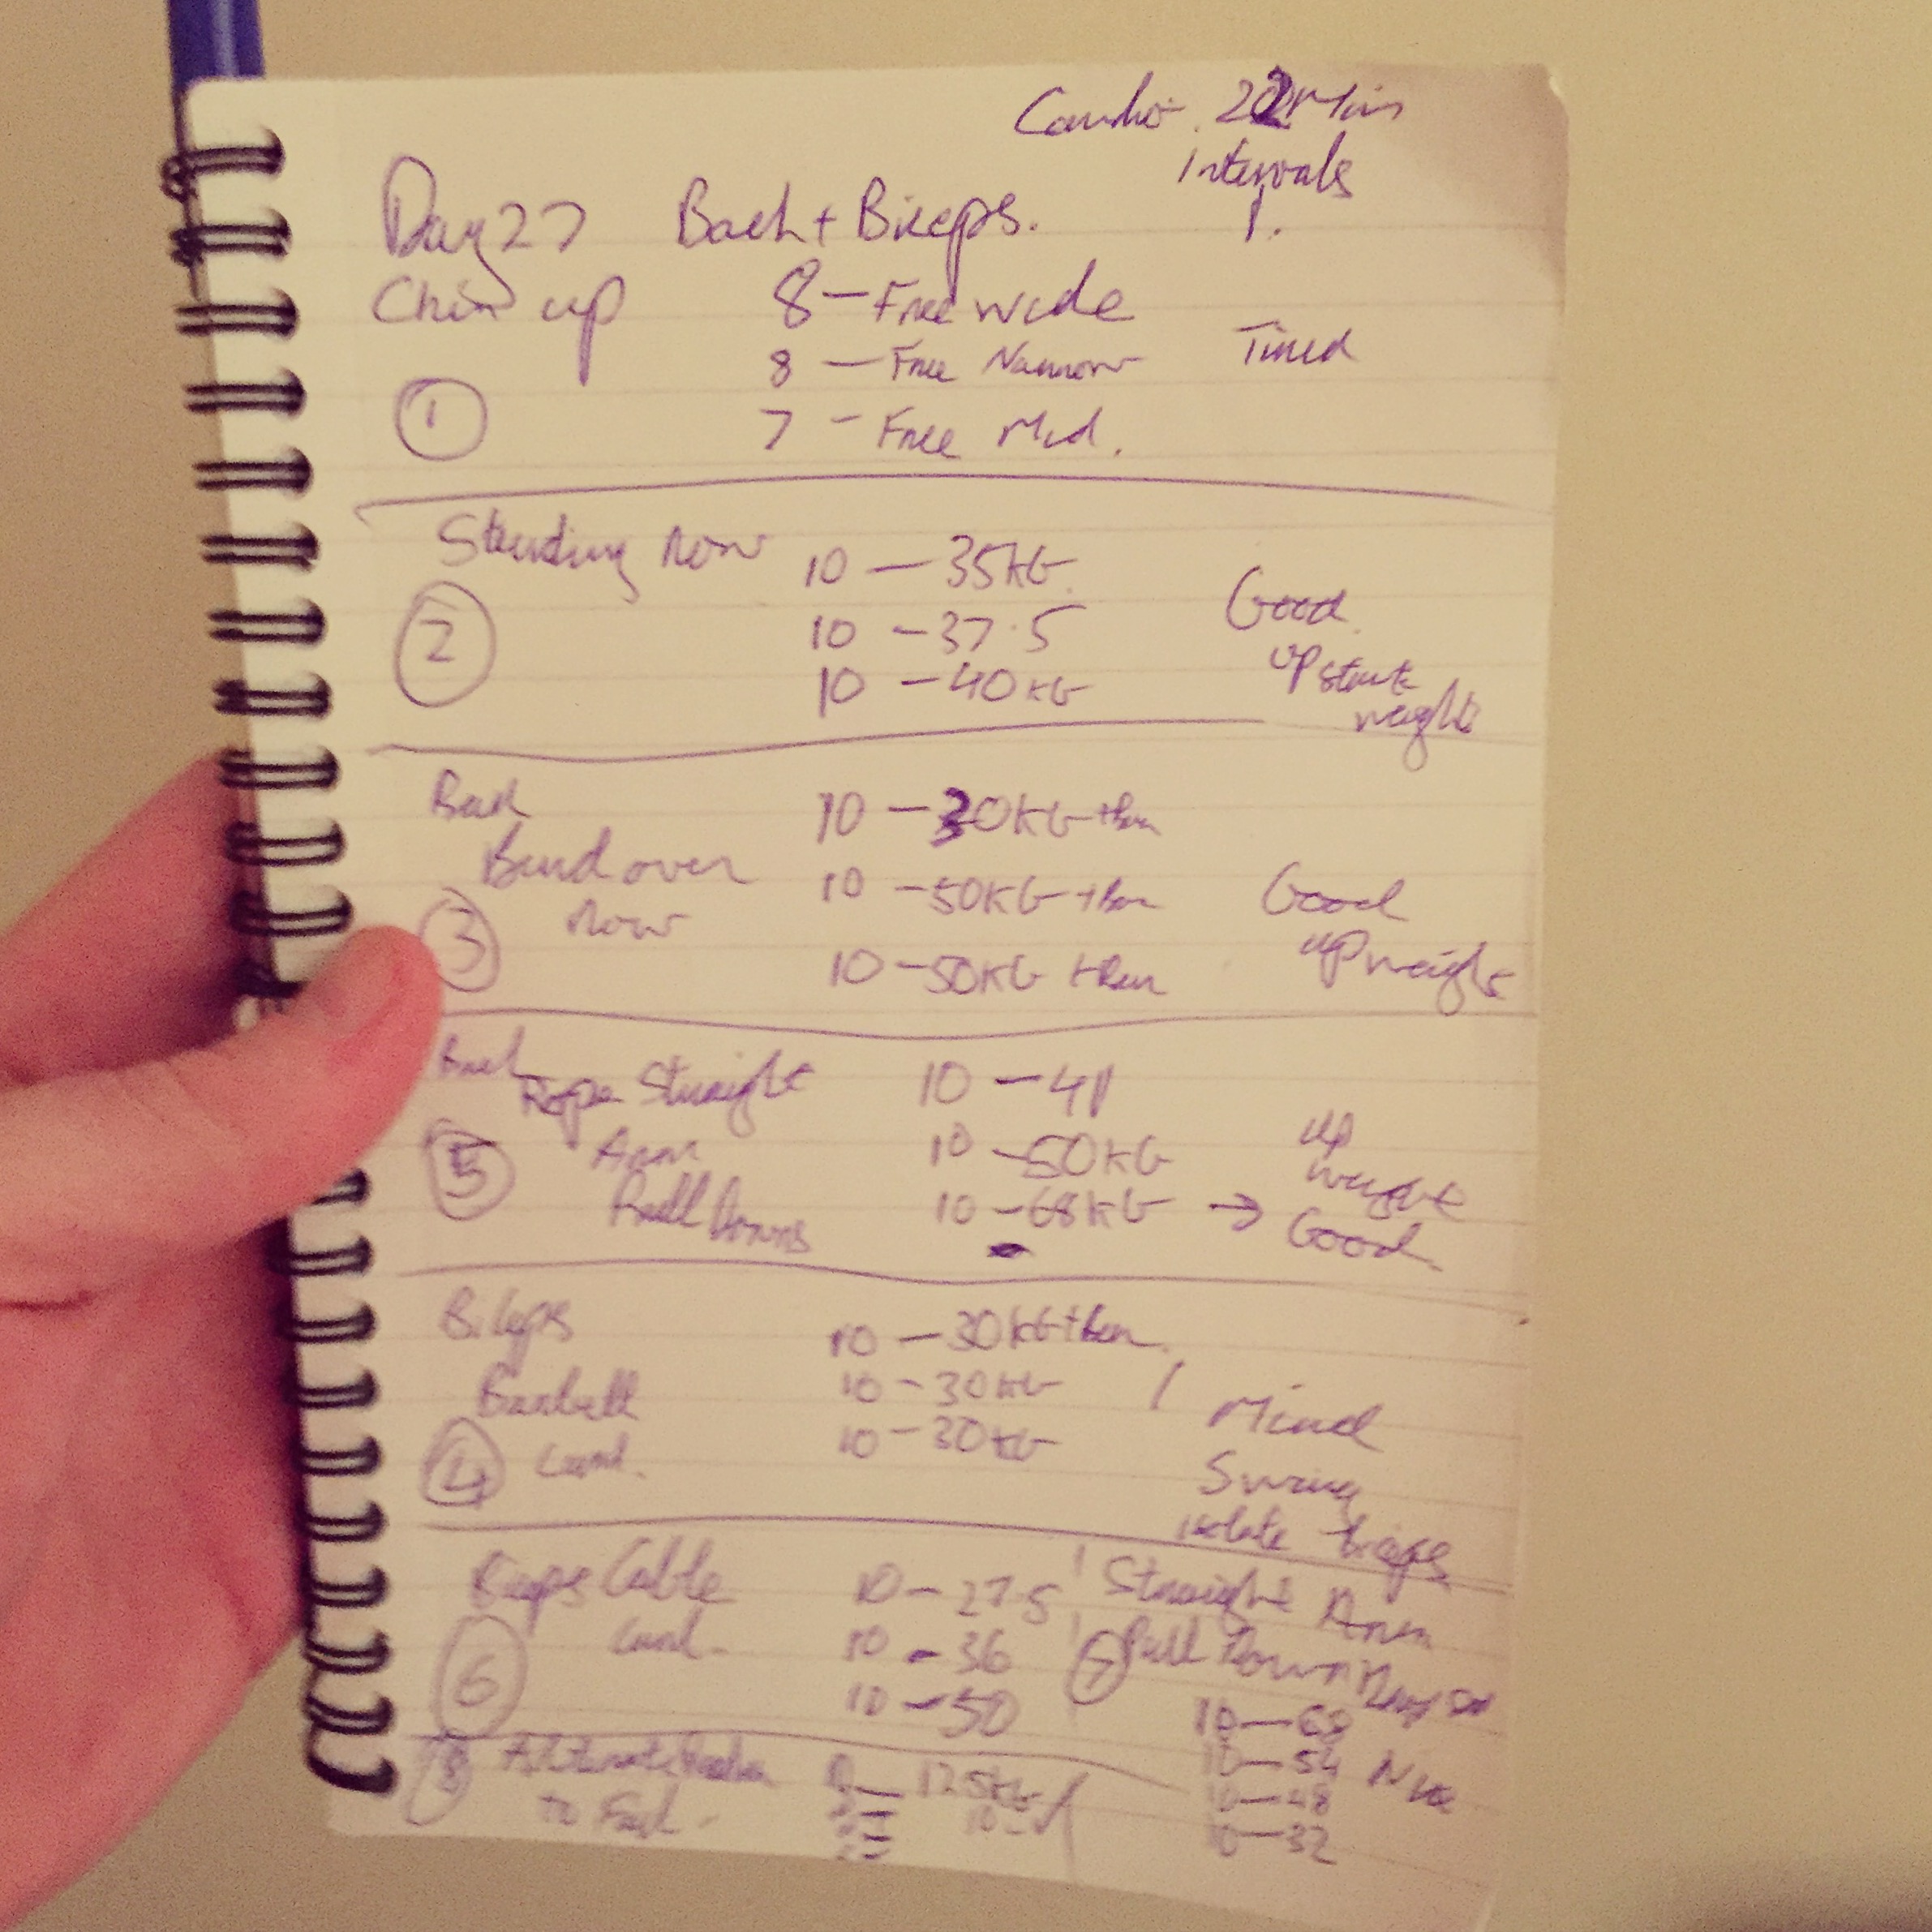 Cardio. 22 Mins
Intervals
Day 27 Back + Biceps.
Chin up 8 - Free wide
8 - Free Narrow Tired
1 7 - Free Mid.
Standing Row 10 - 35KG
2 10 - 37.5 Good
10 - 40KG up start
weight
Back 10 - 30KG + Bar
Bend over 10 - 50KG + Bar Good
3 Row 10 - 50KG + Bar up weight
Back Rope Straight 10 - 41
5 Arm 10 - 50KG up
weight
Pull Downs 10 - 68KG → Good
Biceps 10 - 30KG + Bar
Barbell 10 - 30KG Mind
4 Curl. 10 - 30KG Swing
isolate biceps
Biceps Cable 10 - 27.5 Straight Arm
6 Curl. 10 - 36 7 Pull Down Drop set
10 - 50 10 - 68
8 Alternate 12.5KG 10 - 54 Nice
to Fail. 10 10 - 48
10 - 32